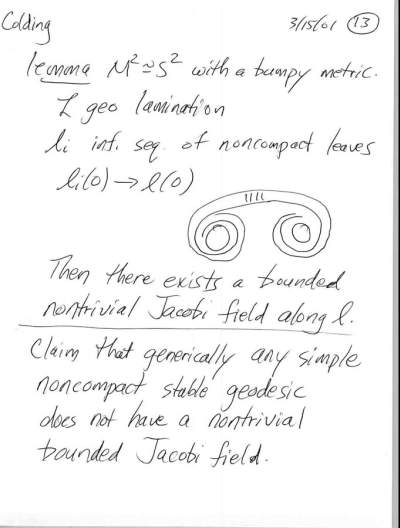 Colding 3/15/01 13
lemma M²≃S² with a bumpy metric.
L geo lamination
li inf. seq. of noncompact leaves
li(0) → l(0)
Then there exists a bounded
nontrivial Jacobi field along l.
Claim that generically any simple
noncompact stable geodesic
does not have a nontrivial
bounded Jacobi field.